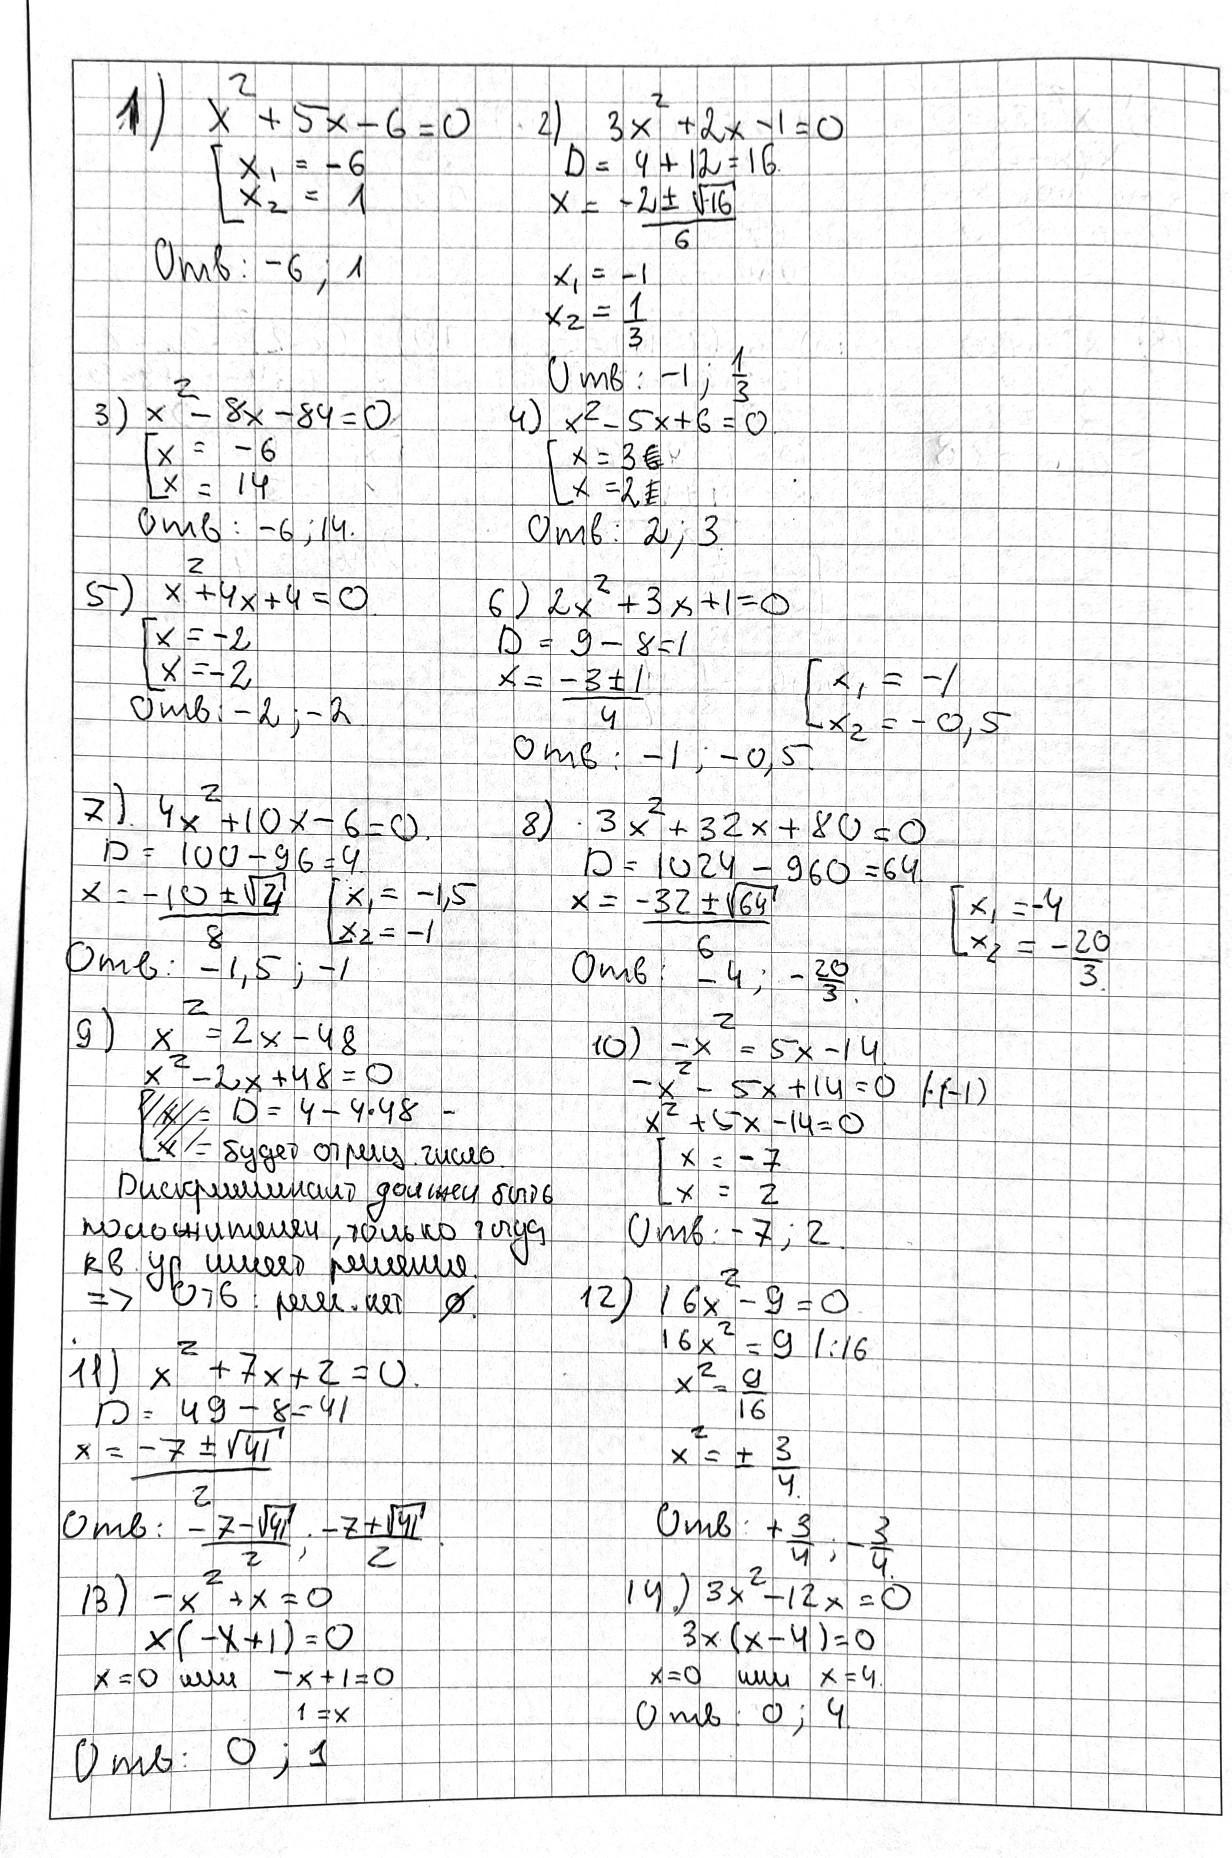 1) x² + 5x - 6 = 0
[ x₁ = -6
x₂ = 1
Отв: -6 ; 1
2) 3x² + 2x - 1 = 0
D = 4 + 12 = 16
x = (-2 ± √16)/6
x₁ = -1
x₂ = 1/3
Отв: -1 ; 1/3
3) x² - 8x - 84 = 0
[ x = -6
x = 14
Отв: -6 ; 14.
4) x² - 5x + 6 = 0
[ x = 3
x = 2
Отв: 2 ; 3
5) x² + 4x + 4 = 0
[ x = -2
x = -2
Отв: -2 ; -2
6) 2x² + 3x + 1 = 0
D = 9 - 8 = 1
x = (-3 ± 1)/4
[ x₁ = -1
x₂ = -0,5
Отв: -1 ; -0,5.
7). 4x² + 10x - 6 = 0.
D = 100 - 96 = 4
x = (-10 ± √4)/8
[ x₁ = -1,5
x₂ = -1
Отв: -1,5 ; -1
8) 3x² + 32x + 80 = 0
D = 1024 - 960 = 64
x = (-32 ± √64)/6
[ x₁ = -4
x₂ = -20/3.
Отв: -4 ; -20/3.
9) x² = 2x - 48
x² - 2x + 48 = 0
D = 4 - 4·48 -
будет отриц. число.
Дискриминант должен быть
положителен, только тогда
кв. ур имеет решение.
=> Отв: реш. нет ∅.
10) -x² = 5x - 14
-x² - 5x + 14 = 0 |·(-1)
x² + 5x - 14 = 0
[ x = -7
x = 2
Отв: -7 ; 2
11) x² + 7x + 2 = 0.
D = 49 - 8 = 41
x = (-7 ± √41)/2
Отв: (-7-√41)/2 ; (-7+√41)/2.
12) 16x² - 9 = 0
16x² = 9 |:16
x² = 9/16
x² = ± 3/4.
Отв: +3/4 ; -3/4.
13) -x² + x = 0
x(-x+1) = 0
x = 0 или -x + 1 = 0
1 = x
Отв: 0 ; 1
14.) 3x² - 12x = 0
3x(x-4) = 0
x = 0 или x = 4.
Отв: 0 ; 4